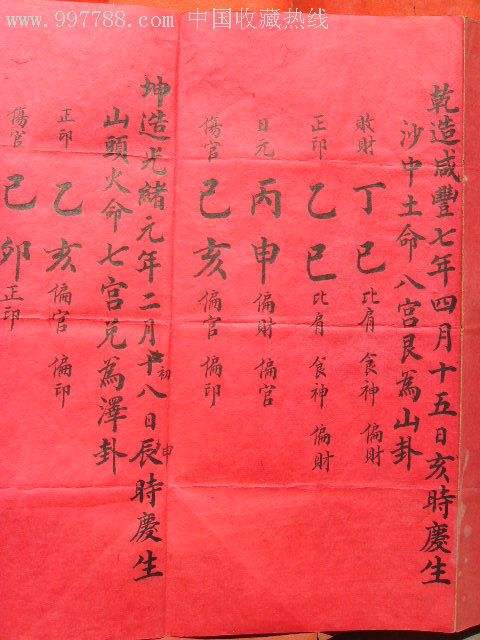 www.997788.com 中国收藏热线
乾造咸豐七年四月十五日亥時慶生
沙中土命八宮艮為山卦
敗財 丁巳 比肩 食神 偏財
正印 乙巳 比肩 食神 偏財
日元 丙申 偏財 偏官
傷官 己亥 偏官 偏印
坤造光緒元年二月十初八日辰申時慶生
山頭火命七宮兑為澤卦
正印 乙亥 偏官 偏印
傷官 己卯 正印